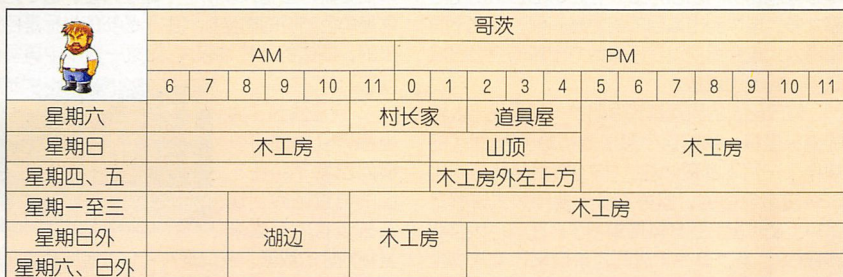 哥茨
AM PM
6 7 8 9 10 11 0 1 2 3 4 5 6 7 8 9 10 11
星期六 村长家 道具屋
星期日 木工房 山顶 木工房
星期四、五 木工房外左上方
星期一至三 木工房
星期日外 湖边 木工房
星期六、日外